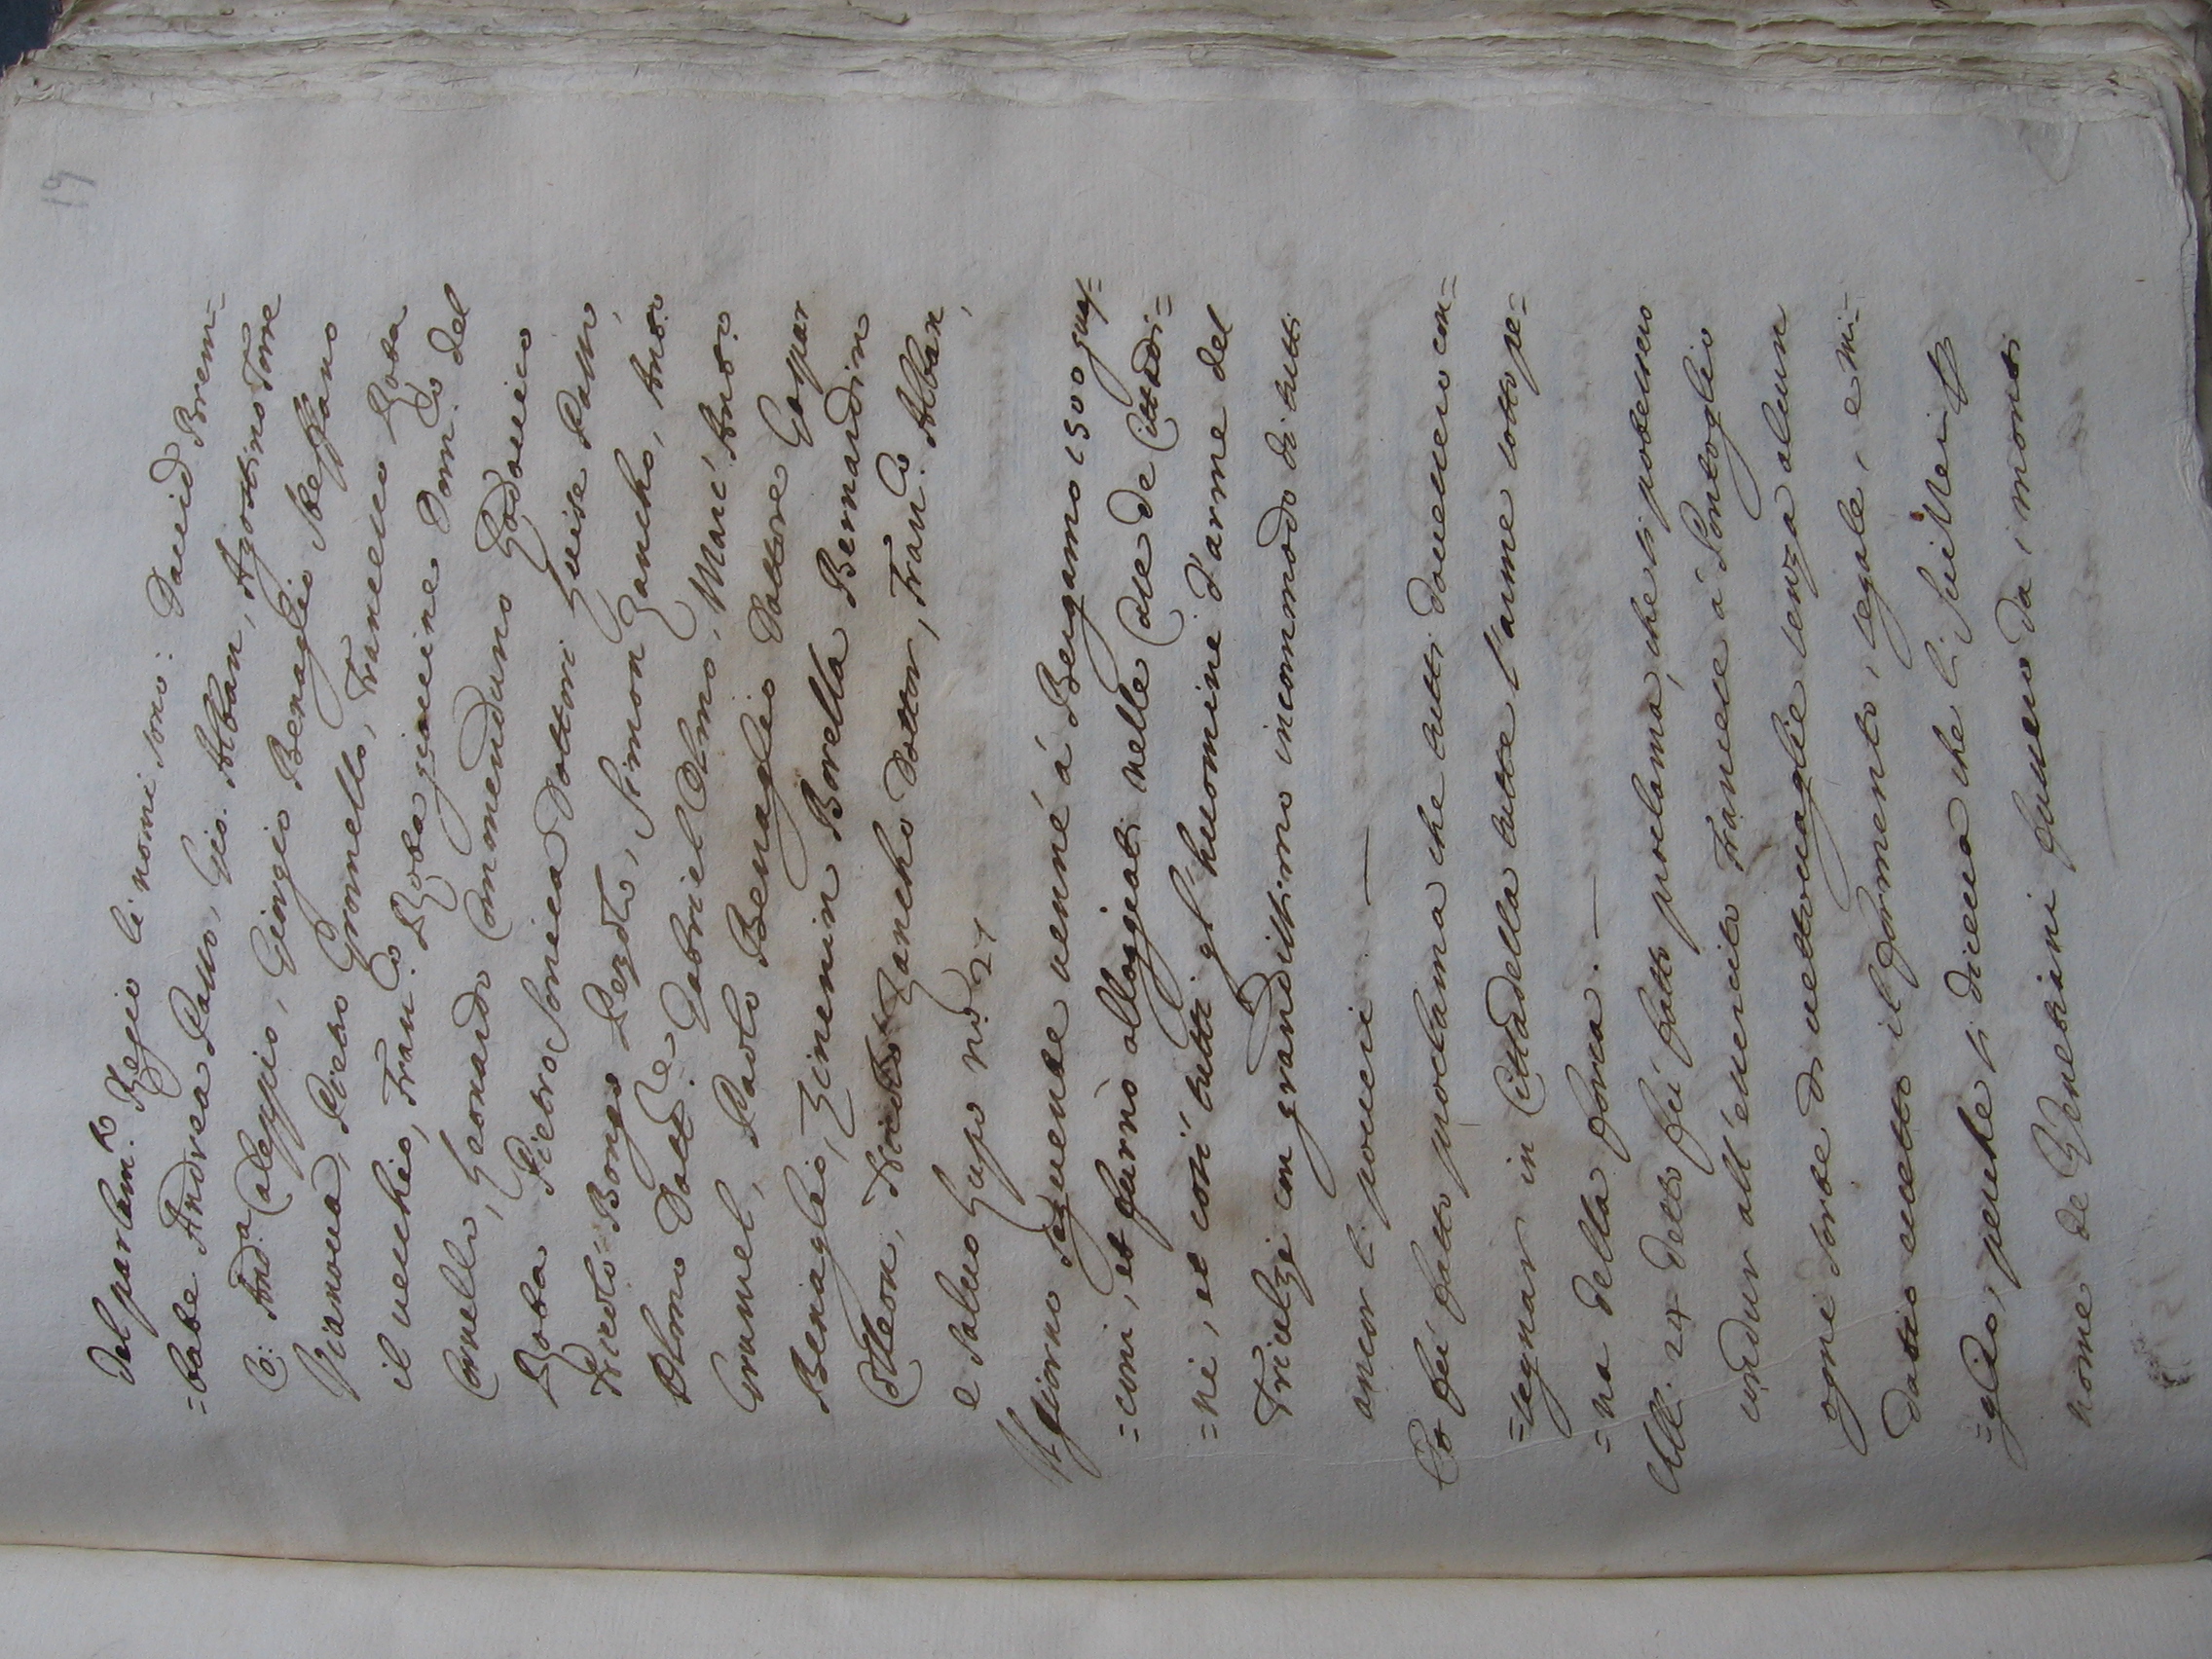 19
del parlam.to Regio li nomi sono: David Brem=
=bate Andrea Passo, Gio. Alban, Agostino Torre
C: And.a Caleppio, Giorgio Benaglio Steffano
Vianova, Pietro Gromello, Francesco Rota
il vecchio, Fran.co Rota giovine Dom.co del
Cornello, Leonardo Commenduno Lodovico
Rota Pietro Sonica Dottori Luise Passi,
Nicolò Bongo Pezolo, Simon Zancho, Ant.o
Olmo Dott.re Gabriel Olmo, Marc' Ant.o
Grumel, Paolo Benaglio Dottore Gaspar
Benaglio, Zinevrin Borella Bernardin
Colleon, Nicolò Zancho Dottor, Fran.co Alban,
e Salvo Lupo n.o 27
Al giorno seguente venne à Bergamo 1500 guas=
=coni, et furno alloggiati nelle case de Cittadi=
=ni, et così tutti gl'huomini d'arme del
Triulzi con grandissimo incommodo di tutti
ancor li poveri —
Et fù fatto proclama che tutti dovessero con=
=segnar in Cittadella tutte l'arme sotto pe=
=na della forca. —
Alli. 24 detto fù fatto proclama, che si potessero
condur all'esercito Francese à Pontoglio
ogni sorte di vettovaglie senza alcun
datio eccetto il formento, segale, e mi=
=glio, perche si diceva che li
nome de Venetiani furno da, monti